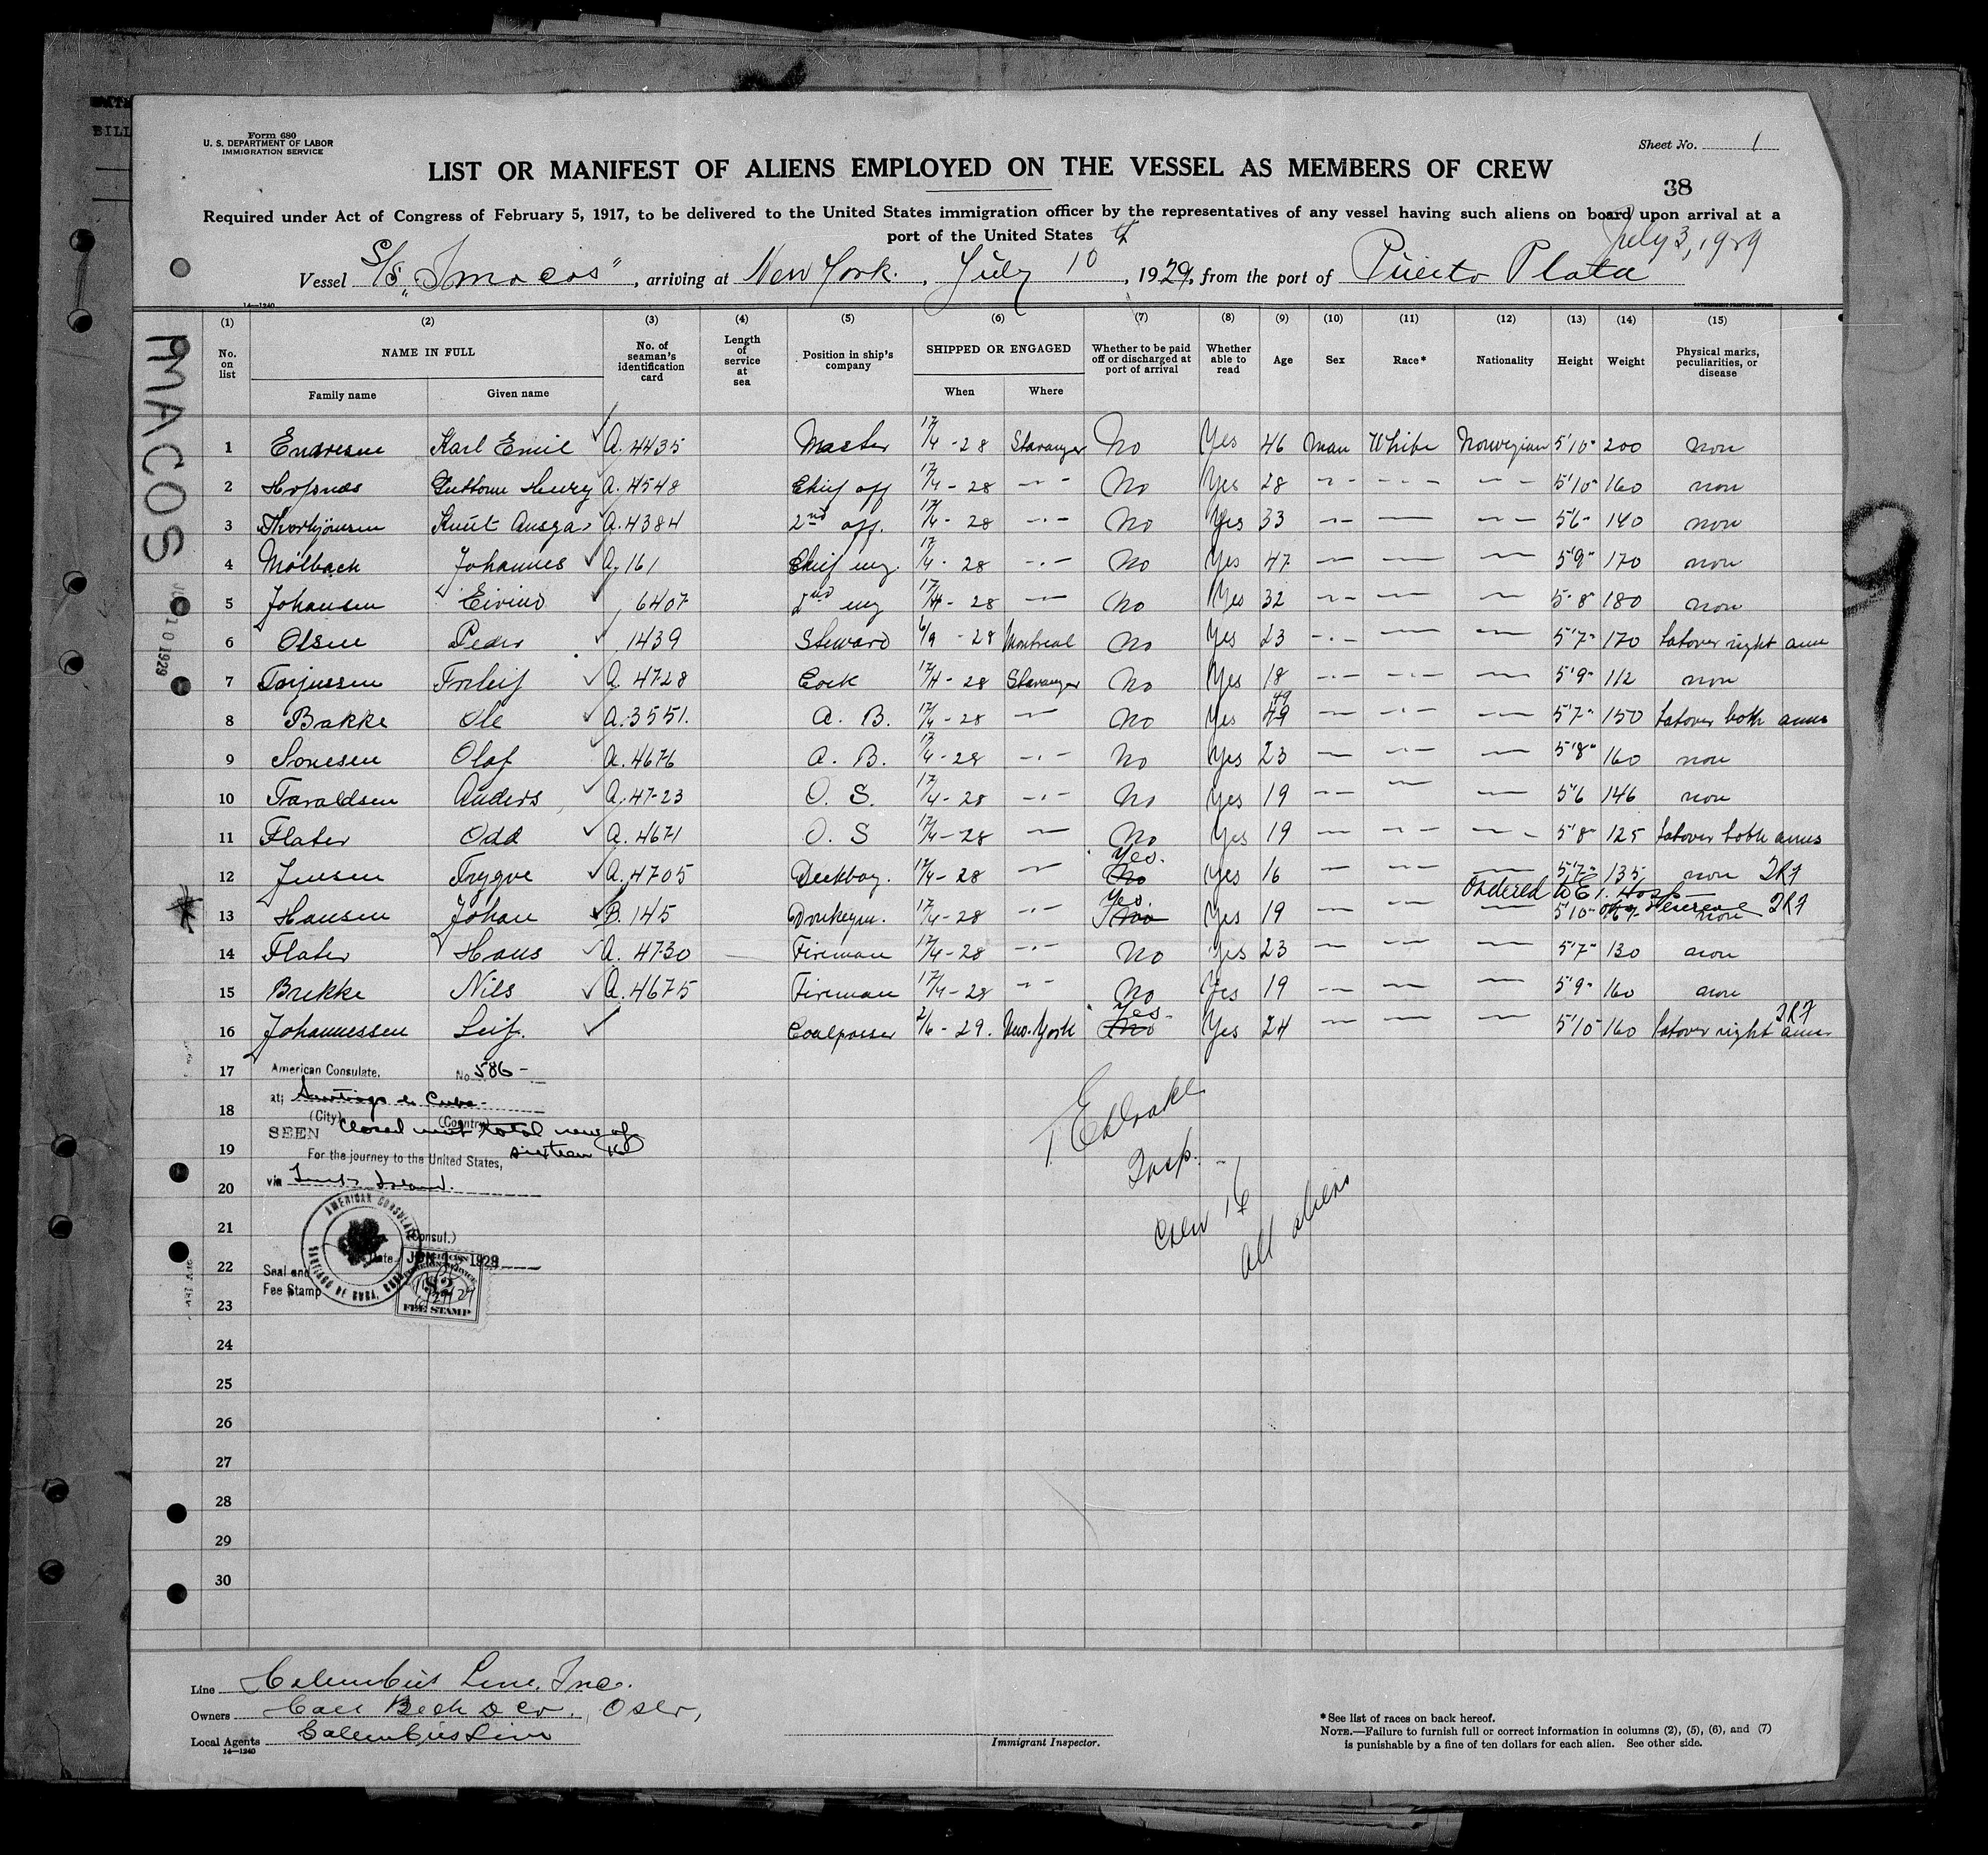 Form 680
U. S. DEPARTMENT OF LABOR
IMMIGRATION SERVICE
Sheet No. 1
LIST OR MANIFEST OF ALIENS EMPLOYED ON THE VESSEL AS MEMBERS OF CREW
38
Required under Act of Congress of February 5, 1917, to be delivered to the United States immigration officer by the representatives of any vessel having such aliens on board upon arrival at a
port of the United States
July 3, 1929
Vessel S/S "Imacos", arriving at New York, July 10th, 1929, from the port of Puerto Plata
14—1240
MACOS
10 1929
(1) (2) (3) (4) (5) (6) (7) (8) (9) (10) (11) (12) (13) (14) (15)
No. on list NAME IN FULL No. of seaman's identification card Length of service at sea Position in ship's company SHIPPED OR ENGAGED Whether to be paid off or discharged at port of arrival Whether able to read Age Sex Race* Nationality Height Weight Physical marks, peculiarities, or disease
Family name Given name When Where
1 Endresen Karl Emil A. 4435 Master 17/4 - 28 Stavanger No Yes 46 Man White Norwegian 5'10" 200 non
2 Henry A. 4548 Chief off 17/4 - 28 - - No Yes 28 - - - - - - - 5'10" 160 non
3 Thorbjönsen Knut Ansgar A. 4384 2nd off. 17/4 - 28 - - No Yes 33 - - - - - 5'6" 140 non
4 Mölback Johannes A. 161 Chief eng. 17/4 - 28 - - No Yes 47 - - - 5'9" 170 non
5 Johansen Eivind 6407 2nd eng 17/4 - 28 - No Yes 32 - - - - 5'8" 180 non
6 Olsen Peder 1439 Steward 6/9 - 28 Montreal No Yes 23 - - - - 5'7" 170 tatover right arm
7 Torjussen Torleif A. 4728 Cock 17/4 - 28 Stavanger No Yes 18 - - - - - 5'9" 112 non
8 Bakke Ole A. 3551. A. B. 17/4 - 28 - No Yes 49 49 - - - - 5'7" 150 tatover both arms
9 Sörensen Olaf A. 4676 A. B. 17/4 - 28 - - No Yes 23 - - - - 5'8" 160 non
10 Taraldsen Anders A. 4723 O. S. 17/4 - 28 - - No Yes 19 - - - - 5'6 146 non
11 Flater Odd A. 4671 O. S 17/4 - 28 - No Yes 19 - - - - - 5'8" 125 tatover both arms
12 Jensen Trygve A. 4705 Deckboy. 17/4 - 28 - Yes. No Yes 16 - - - 5'7" 135 non
Ordered to E.I. Hosp
13 Hansen Johan B. 145 Donkeym. 17/4 - 28 - - Yes. No Yes 19 - - - - 5'10" non
14 Flater Hans A. 4730 Fireman 17/4 - 28 - - No Yes 23 - - - - 5'7" 130 non
15 Brekke Nils A. 4675 Fireman 17/4 - 28 - - No Yes 19 - - - - 5'9" 160 non
16 Johannessen Leif. Coalpasser 2/6 - 29. New York Yes. No Yes 24 - - - 5'10" 160 tatover right arm
17 American Consulate, No. 586 -
18 at; Santiago de Cuba
(City) (Country)
SEEN Closed with total crew of
19 For the journey to the United States, sixteen 16
20 via Island.
T. E. Drake
Insp.
Crew 16
all aliens
21 (Consul.)
AMERICAN CONSULATE
SANTIAGO DE CUBA, CUBA
22 Seal and Date 1929
Fee Stamp
$2
FEE STAMP
23
24
25
26
27
28
29
30
9
Line Columbus Line, Inc.
Owners Carl Bech & Co., Oslo,
Local Agents Columbus Line
14—1240
Immigrant Inspector.
*See list of races on back hereof.
NOTE.—Failure to furnish full or correct information in columns (2), (5), (6), and (7)
is punishable by a fine of ten dollars for each alien. See other side.